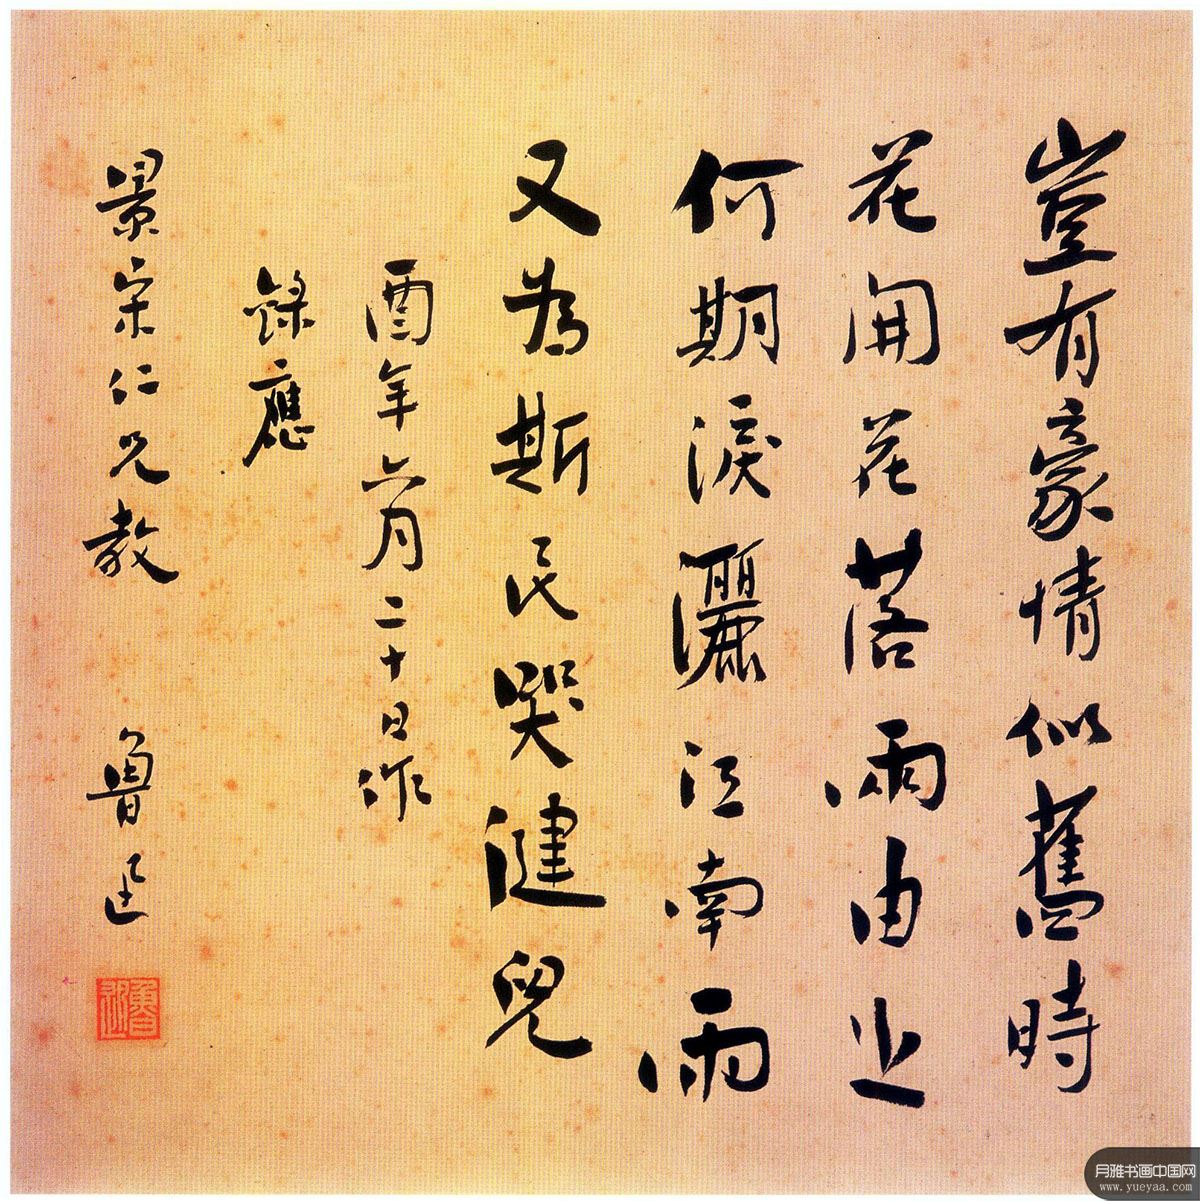 豈有豪情似舊時
花開花落兩由之
何期淚灑江南雨
又為斯民哭健兒
酉年六月二十日作
錄應
景宋仁兄教 魯迅
魯迅
月雅书画中国网
www.yueyaa.com